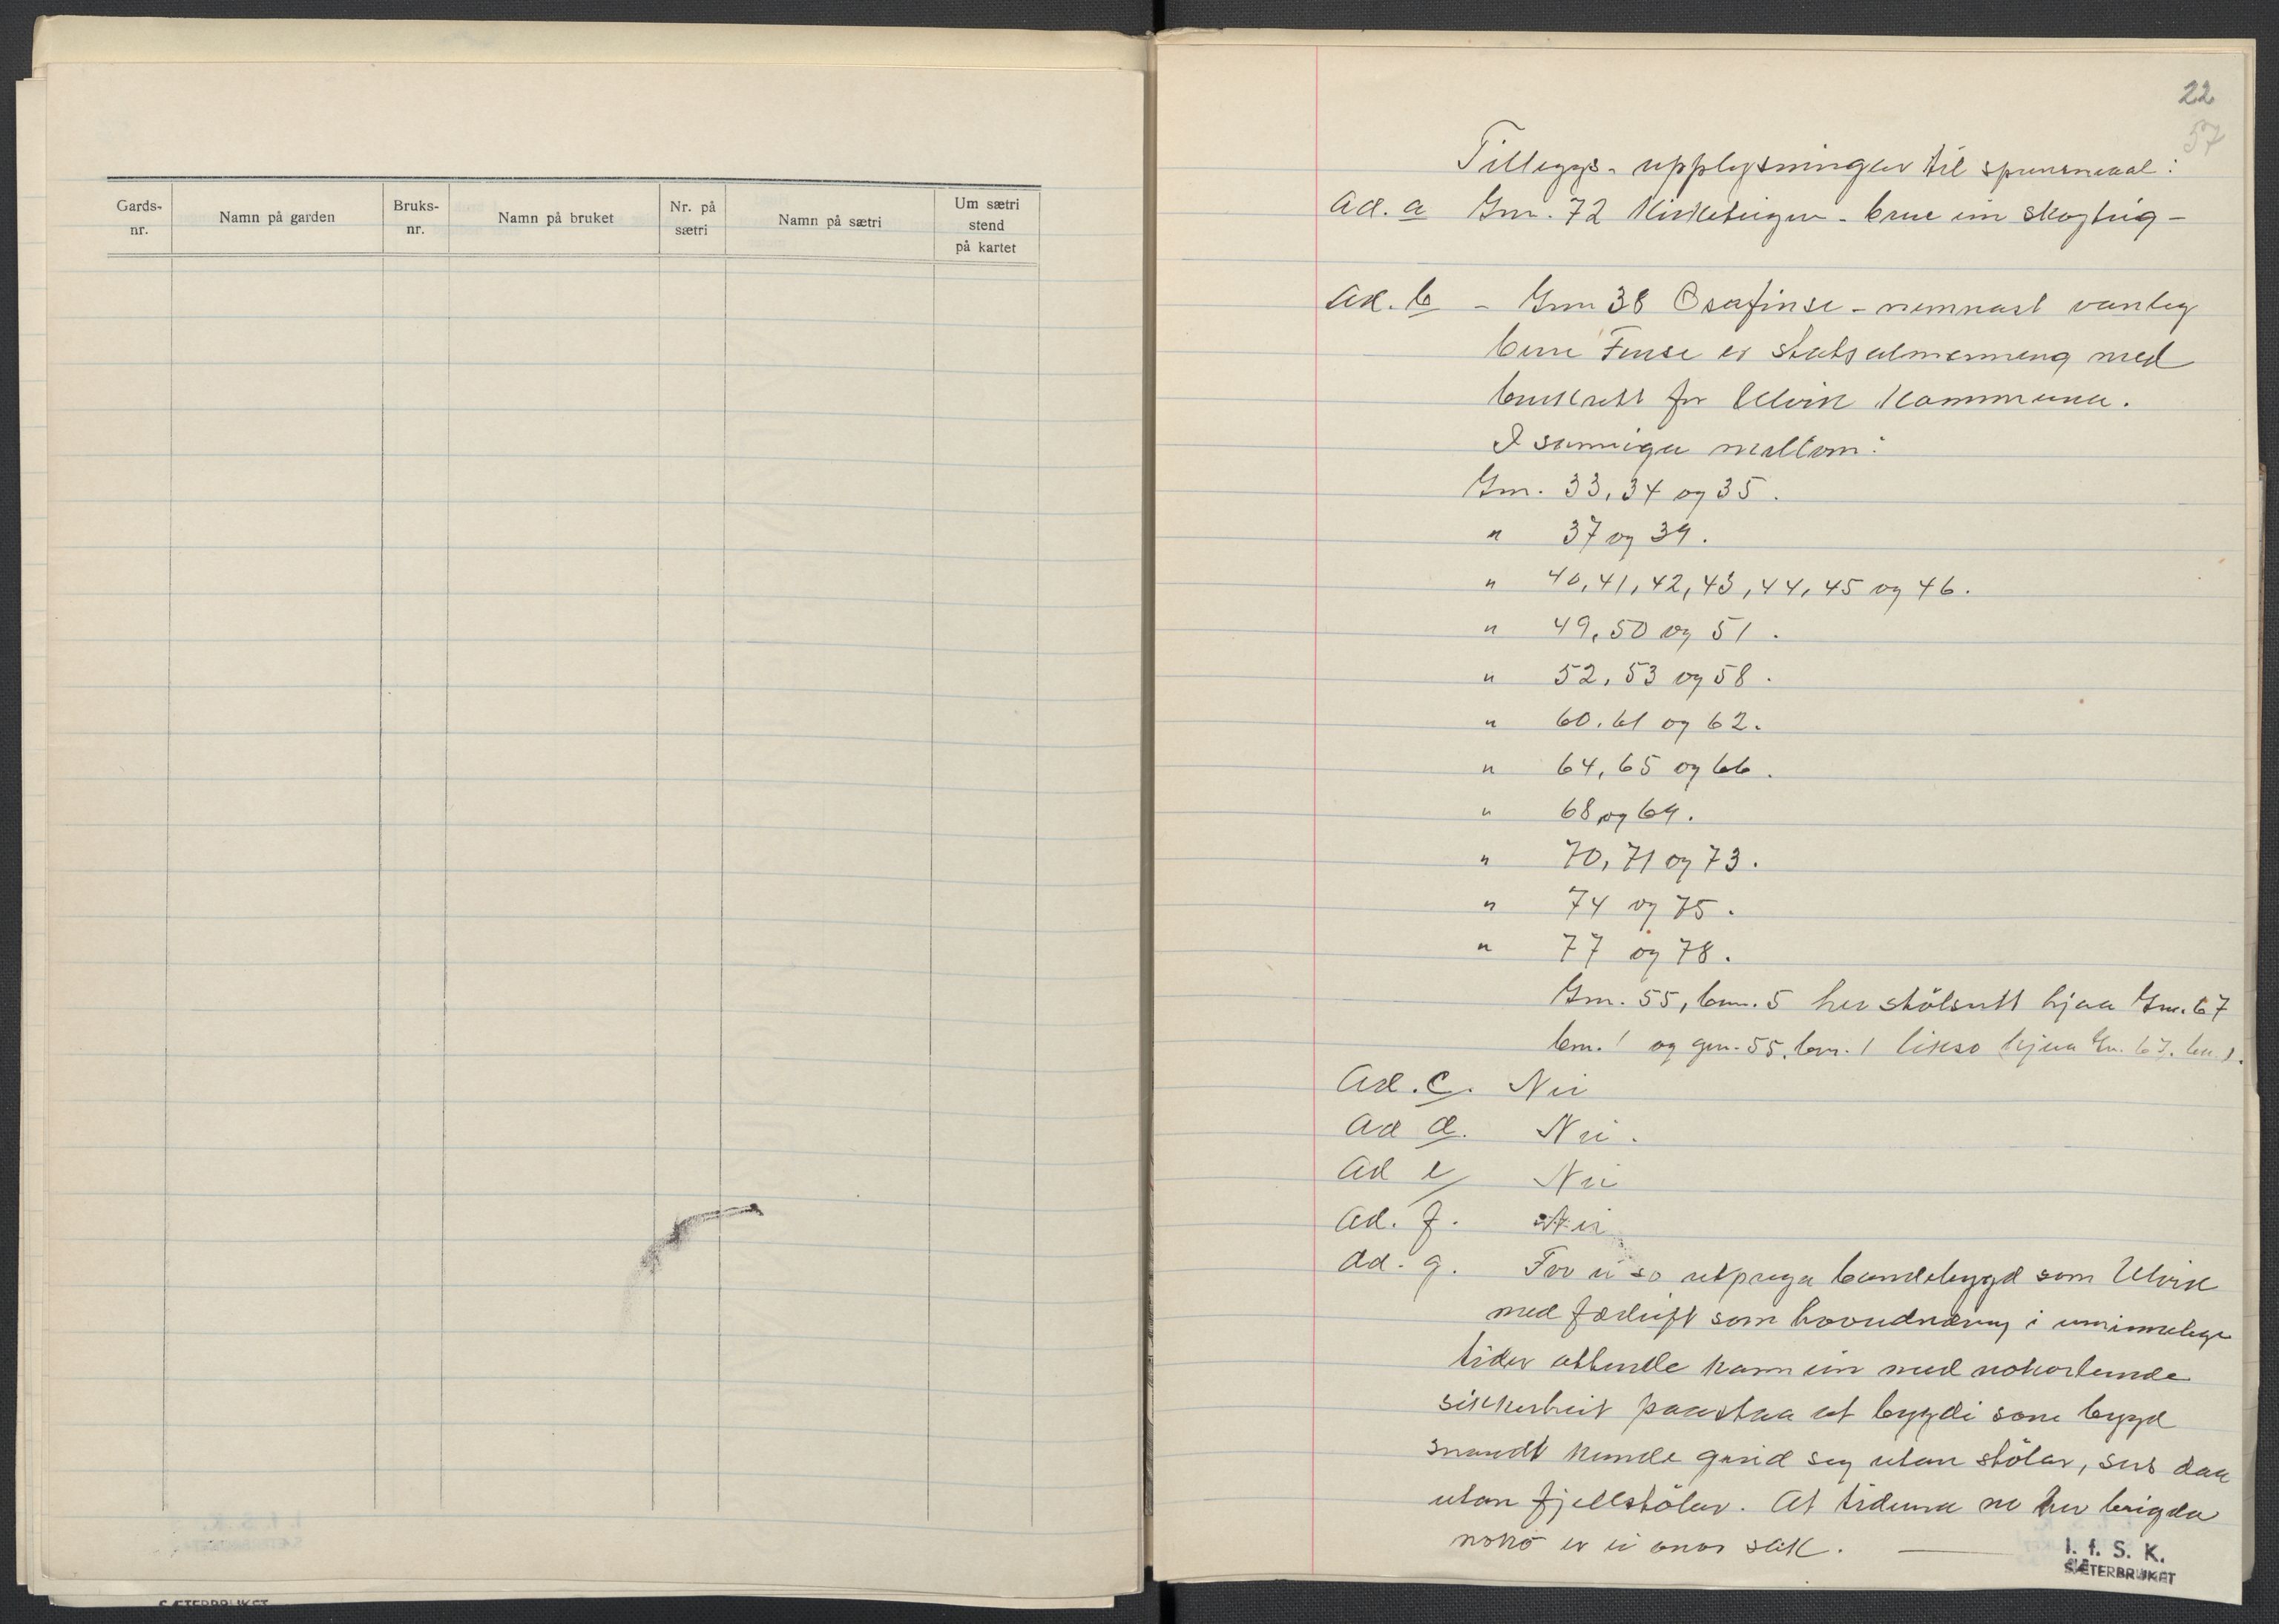 Gards-
nr.
Namn på garden
Bruks-
nr.
Namn på bruket
Nr. på
sætri
Namn på sætri
Um sætri
stend
på kartet
22
57
Tilleggs-upplysningar til spursmaal:
Ad. a Gnr. 72 Kirketeigen - bare ein skogteig -
Ad. b - Gnr 38 Osafinse - nemnast vanleg
bare Finse er statsalmenning med
bruksrett for Ulvik Kommune.
I sameiga mellom:
Gnr. 33, 34 og 35.
" 37 og 39.
" 40, 41, 42, 43, 44, 45 og 46.
" 49, 50 og 51.
" 52, 53 og 58.
" 60. 61 og 62.
" 64, 65 og 66.
" 68 og 69.
" 70, 71 og 73.
" 74 og 75.
" 77 og 78.
Gnr. 55, bnr. 5 her stölsrett hjaa Gnr. 67
bnr. 1 og gnr. 55. bnr. 1 likso hjaa Gn. 67. bn. 1.
Ad. c. Nei
Ad d. Nei.
Ad e Nei
Ad. f. Nei
Ad. g. For ei so utprega bondebygd som Ulvik
med fædrift som hovudnæring i uminnelege
tider attende kann ein med nokorlunde
sikkerheit paastaa at bygdi som bygd
snaudt kunde greid seg utan stölar, sers daa
utan fjellstölar. At tiderna no her brigda
noko er ei onnor sak.
I. f. S. K.
SÆTERBRUKET
SÆTERBRUKET